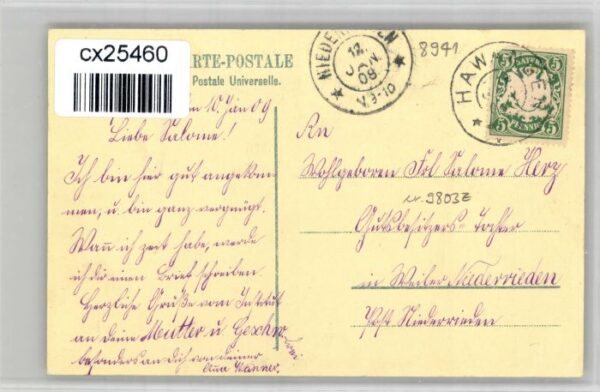 cx25460
RTE-POSTALE
Postale Universelle.
NIEDER
12.
JAN
09
V.9-10
8941
HAW
BAYERN
5 5
PFENNIG
10. Jän 09
Liebe Salome!
Ich bin hier gut angekom-
men, u. bin ganz vergnügt.
Wann ich zeit habe, werde
ich dir einen Brief schreiben
Herzliche Grüße vom Institut
an deine Mutter u. Geschw
besonders an Dich von deiner
Anna Wanner.
An
Wohlgeboren Frl Salome Herz
Nr. 9803Z
Gutsbesitzers-Tochter
in Weiler Niederrieden
Post Niederrieden